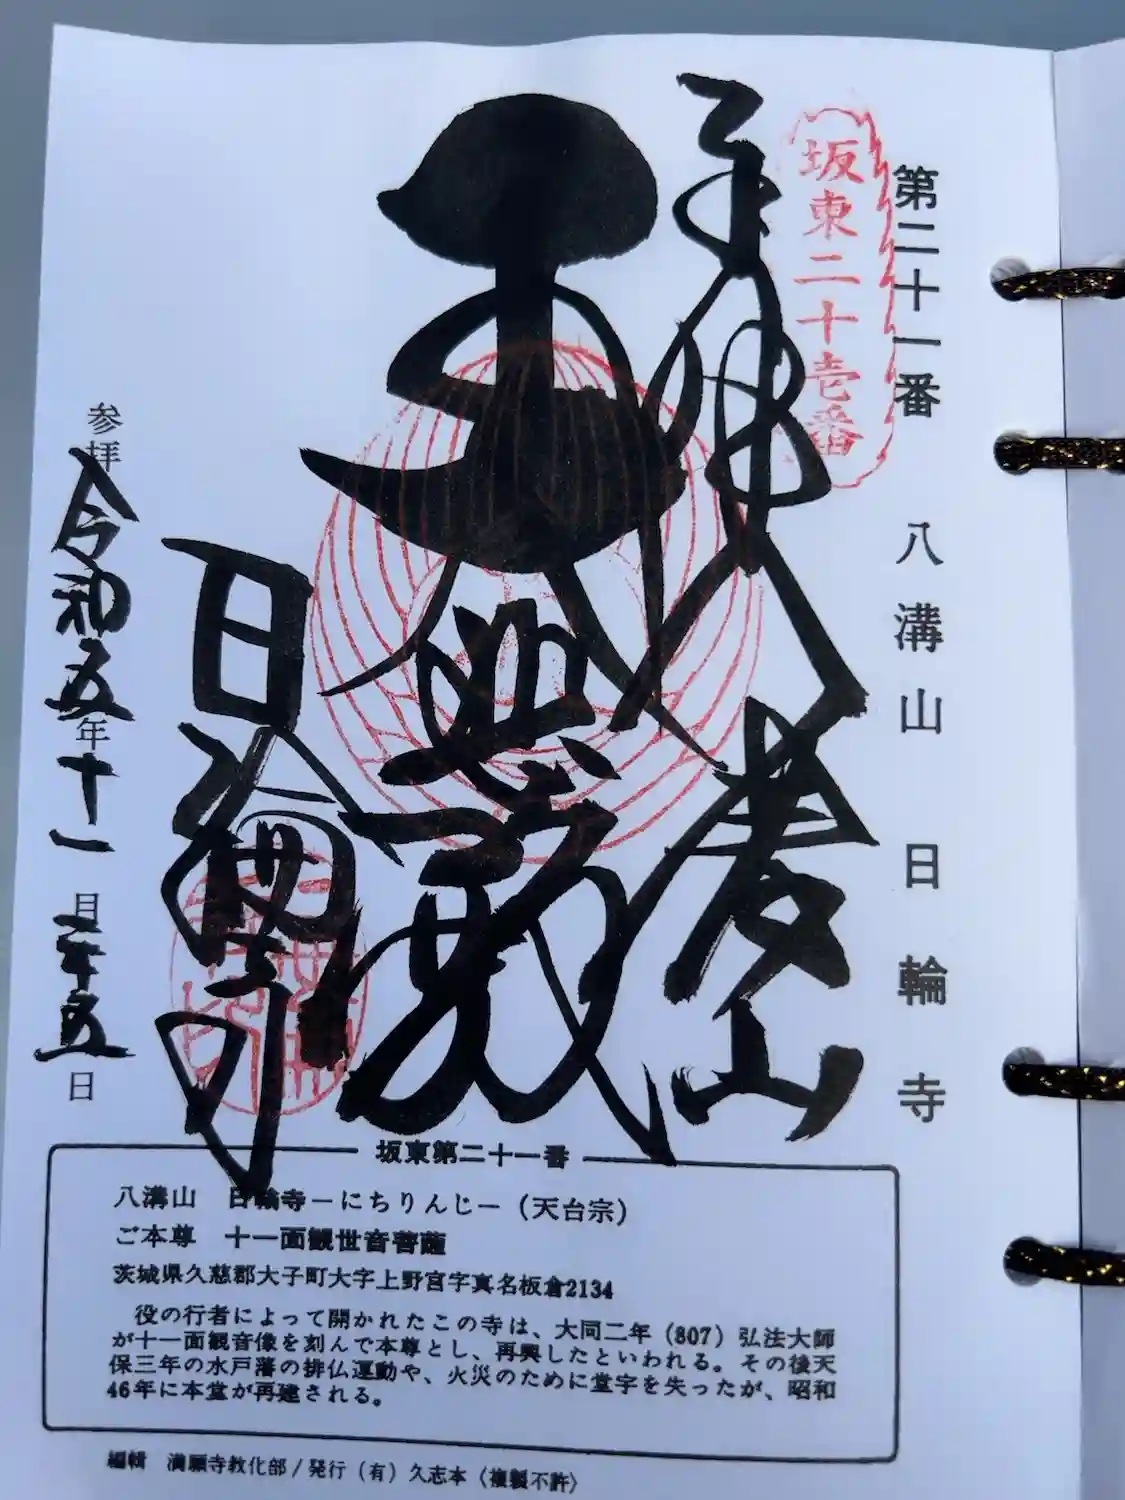 第二十一番 八溝山 日輪寺
坂東二十壱番
奉拝 八溝山
大悲殿
日輪寺
参拝 令和五年十一月二十五日
坂東第二十一番
八溝山 日輪寺－にちりんじ－（天台宗）
ご本尊 十一面観世音菩薩
茨城県久慈郡大子町大字上野宮字真名板倉2134
役の行者によって開かれたこの寺は、大同二年（807）弘法大師
が十一面観音像を刻んで本尊とし、再興したといわれる。その後天
保三年の水戸藩の排仏運動や、火災のために堂宇を失ったが、昭和
46年に本堂が再建される。
編輯 満願寺教化部／発行（有）久志本〈複製不許〉